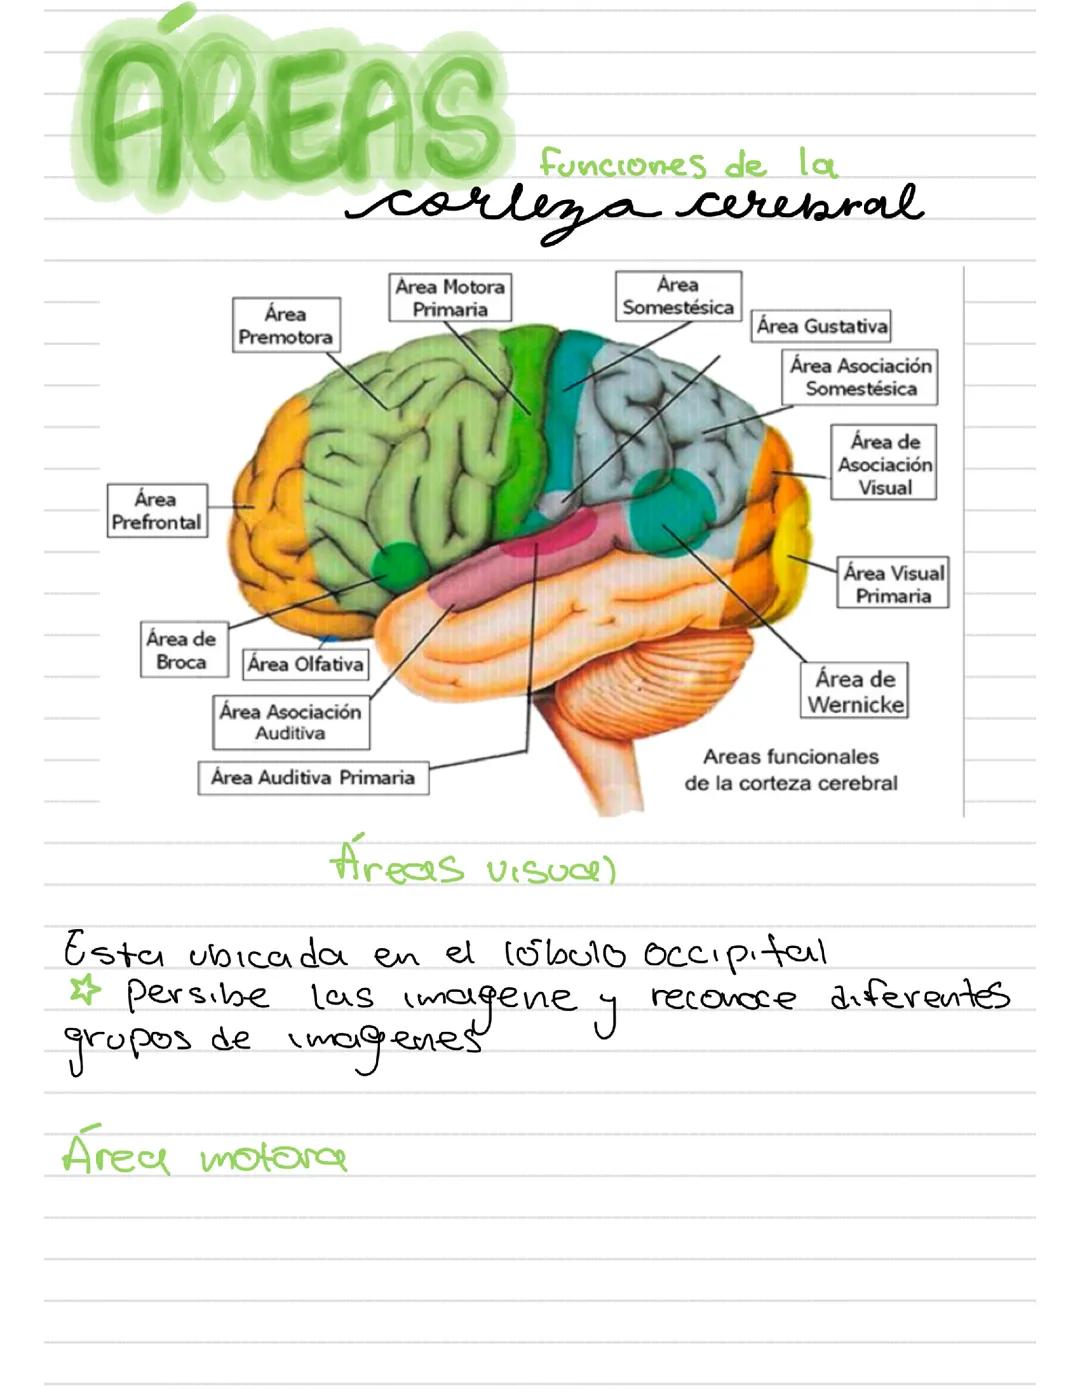 ÁREAS
funciones de la
corteza cerebral
Área Motora
Primaria
Área
Somestésica
Área
Premotora
Área Gustativa
Área Asociación
Somestésica
Área de
Asociación
Visual
Área
Prefrontal
Área Visual
Primaria
Área de
Broca
Área Olfativa
Área de
Wernicke
Área Asociación
Auditiva
Área Auditiva Primaria
Areas funcionales
de la corteza cerebral
Áreas visual
Esta ubicada en el lóbulo occipital
☆ persibe las imagene y reconoce diferentes
grupos de imagenes
Área motora